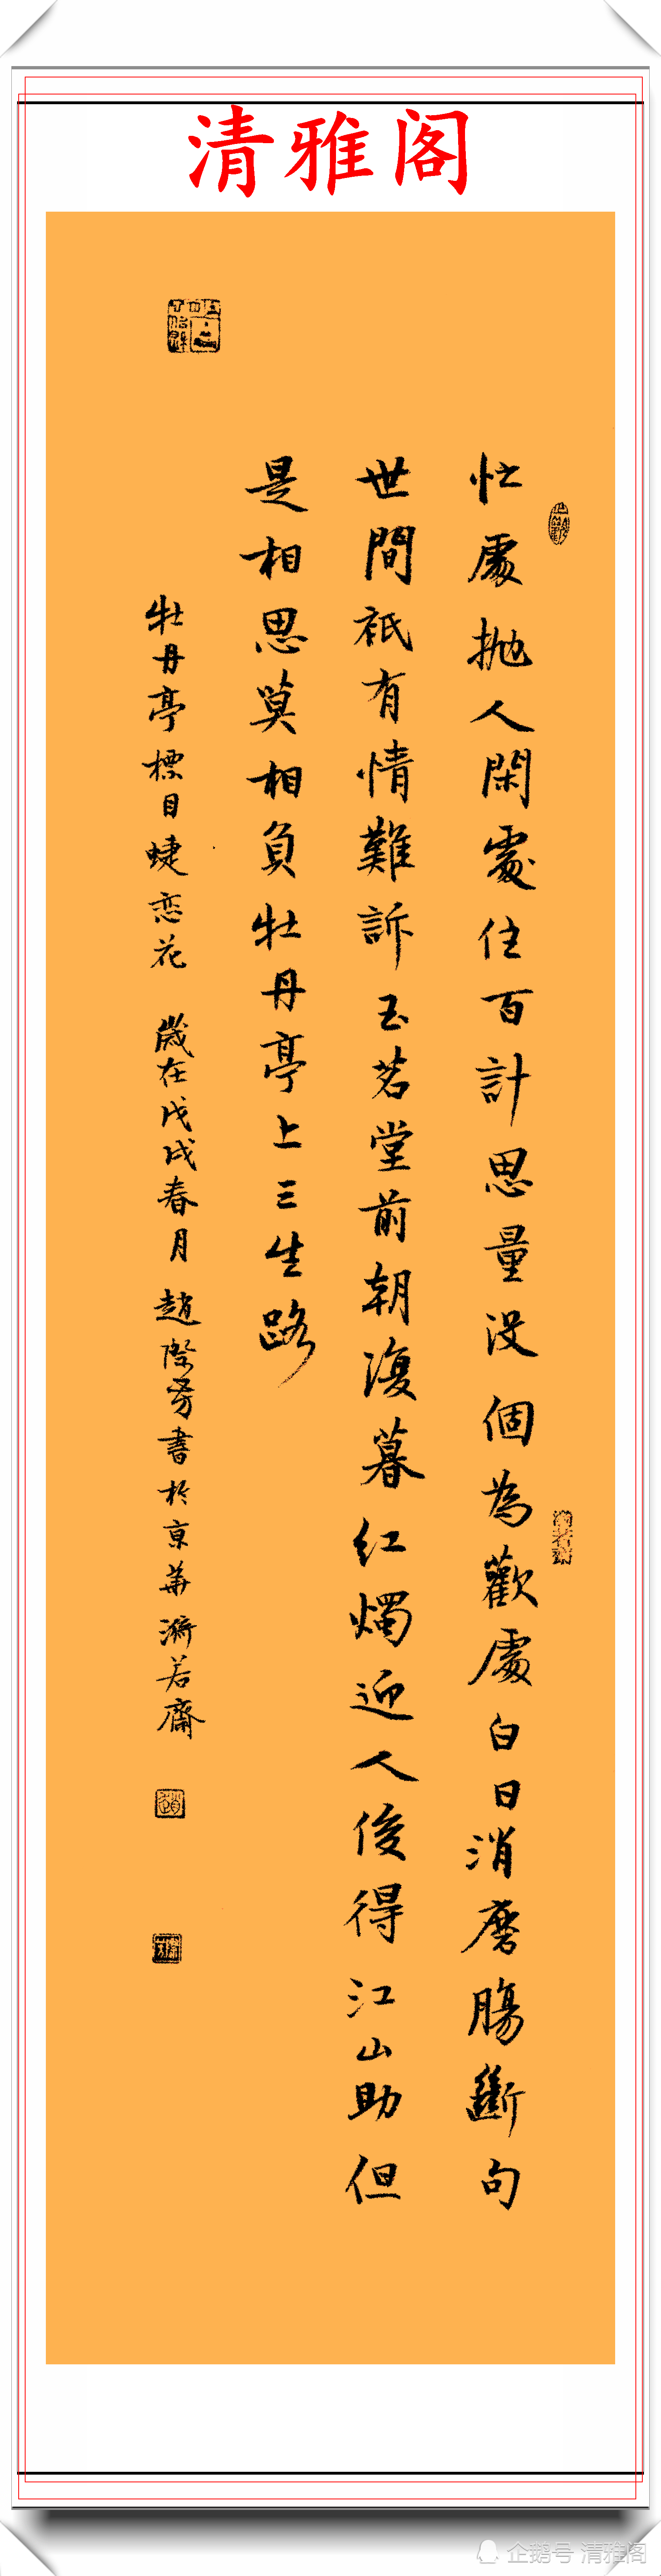 清雅阁
忙處抛人閑處住百計思量没個為歡處白日消磨腸斷句
世間祇有情難訴玉茗堂前朝復暮红燭迎人俊得江山助但
是相思莫相負牡丹亭上三生路
牡丹亭標目蝶恋花 歲在戊戌春月趙際芳書於京華漪若齋
企鹅号 清雅阁